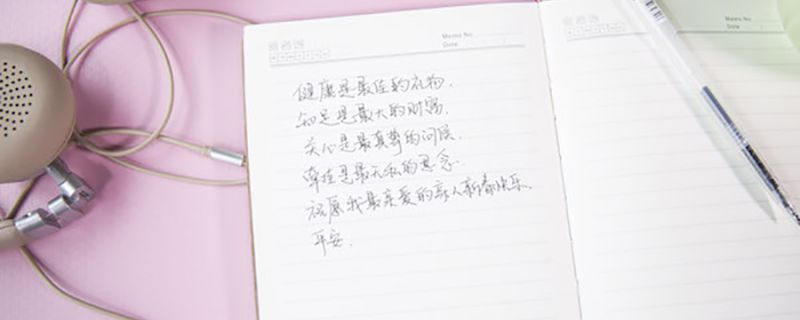 Memo No.
Date
健康是最佳的礼物.
知足是最大的财富,
关心是最真挚的问候.
牵挂是最无私的思念.
祝愿我最亲爱的亲人新春快乐.
平安.
Memo No.
Date